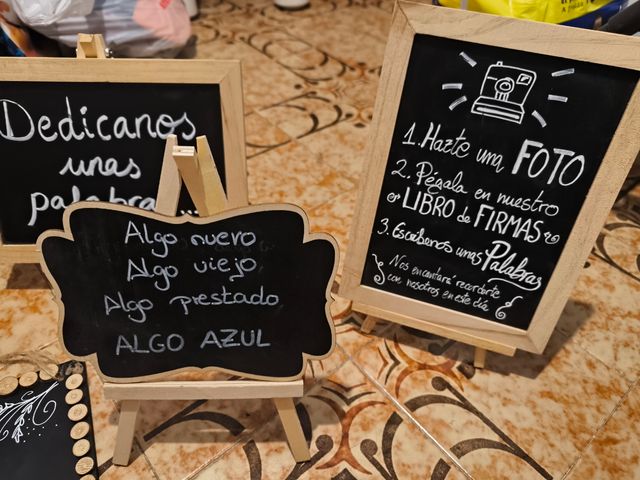 Dedicanos
unas
palabra
Algo nuevo
Algo viejo
Algo prestado
ALGO AZUL
1. Hazte una FOTO
2. Pégala en nuestro
LIBRO de FIRMAS
3. Escríbenos unas Palabras
Nos encantará recordarte
con nosotros en este día